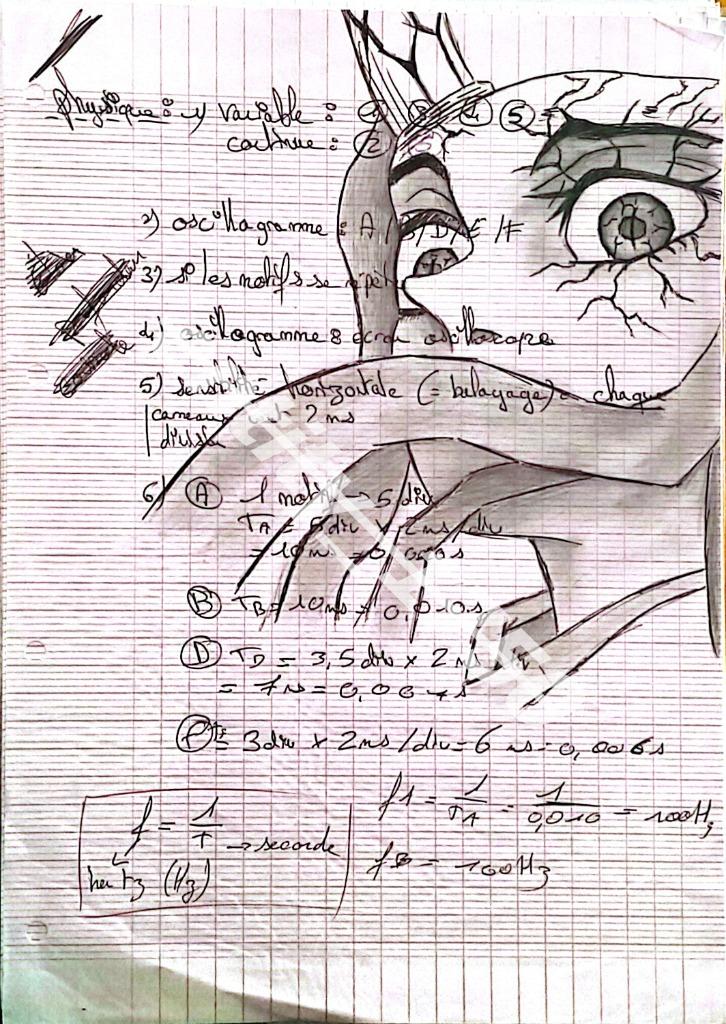 Physique : 1) Variable : ① ③ ④ ⑤
continue : ②
2) oscillogramme : A / B / D / E / F
3) si les motifs se répèt
4) oscillogramme = écran oscilloscope
5) sensibilité horizontale (= balayage) = chaque
2 ms
division
6) Ⓐ 1 motif → 5 div
TA = 5 div × 2 ms/div
= 10 ms = 0,010 s
Ⓑ TB = 10 ms = 0,010 s
Ⓓ TD = 3,5 div × 2 ms
= 7 ms = 0,007 s
3 div × 2 ms / div = 6 ms = 0,006 s
f = 1/T → seconde
hertz (Hz)
f1 = 1/TA = 1/0,010 = 100 Hz
fB = 100 Hz